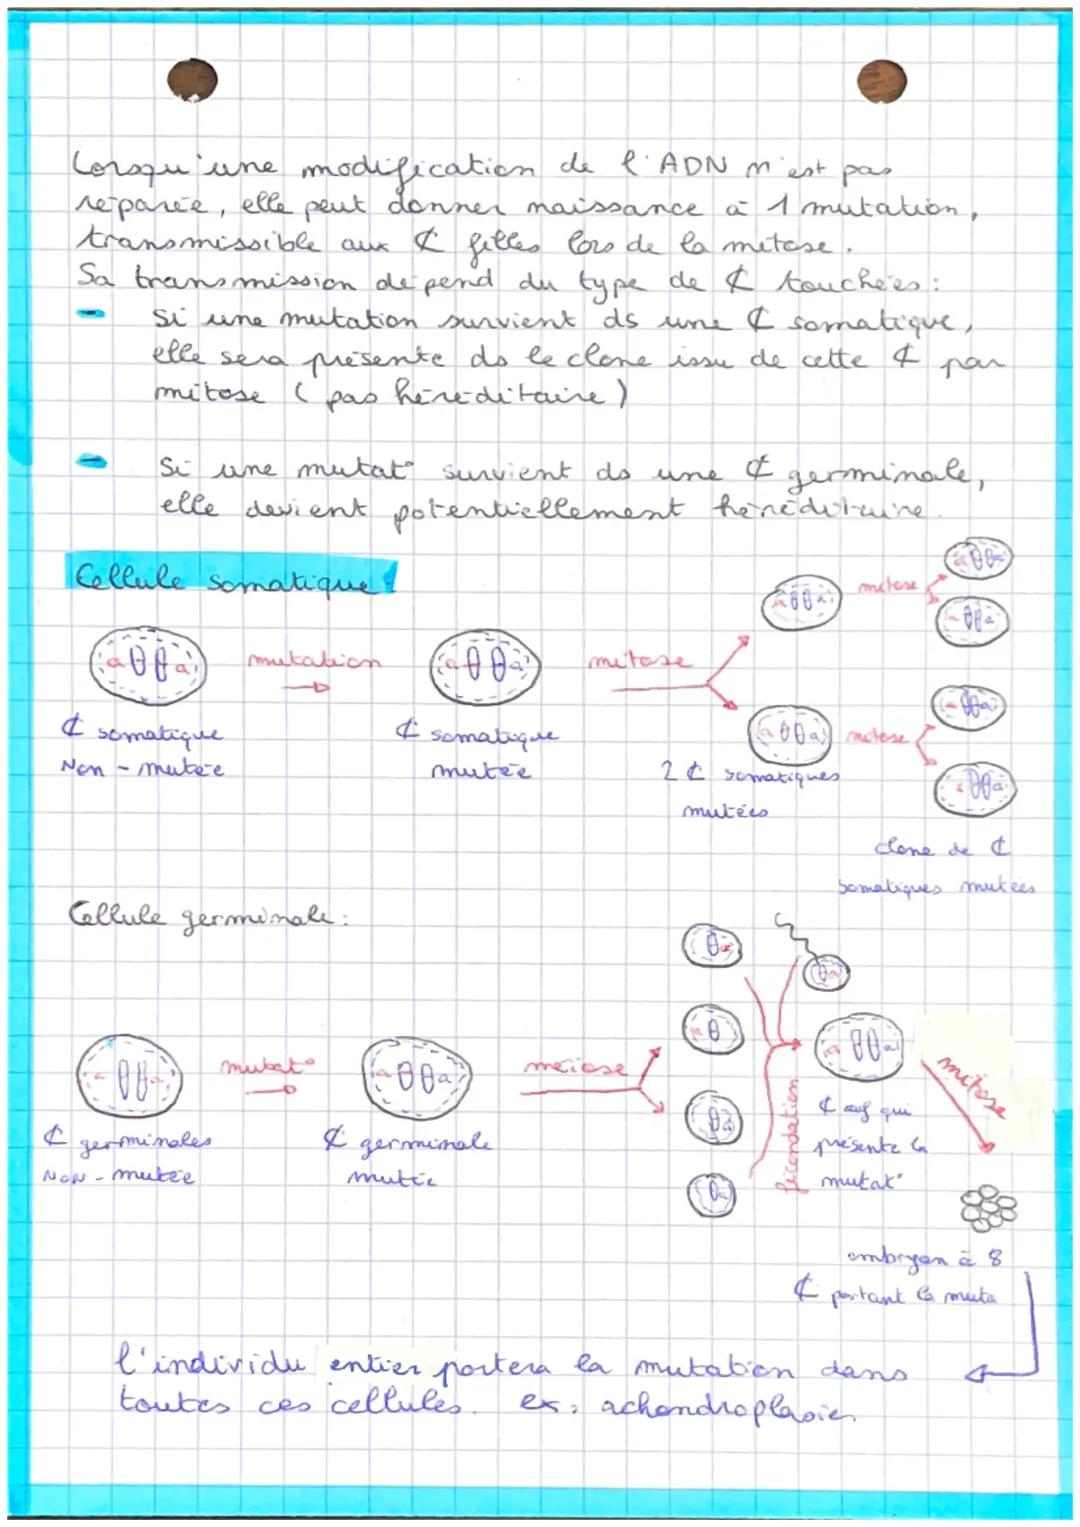 Lorsqu'une modification de l'ADN n'est pas
réparée, elle peut donner naissance à 1 mutation,
transmissible aux ₵ filles lors de la mitose.
Sa transmission dépend du type de ₵ touchées :
- Si une mutation survient ds une ₵ somatique,
elle sera présente ds le clone issu de cette ₵ par
mitose (pas héréditaire)
- Si une mutat° survient ds une ₵ germinale,
elle devient potentiellement héréditaire.
Cellule somatique :
mutation
mitose
mitose
mitose
₵ somatique
Non-mutée
₵ somatique
mutée
2 ₵ somatiques
mutées
clone de ₵
somatiques mutées
Cellule germinale :
mutat°
méiose
fécondation
mitose
₵ germinales
Non-mutée
₵ germinale
mutée
₵ œuf qui
présente la
mutat°
embryon à 8
₵ portant la muta
l'individu entier portera la mutation dans
toutes ces cellules. ex : achondroplasie